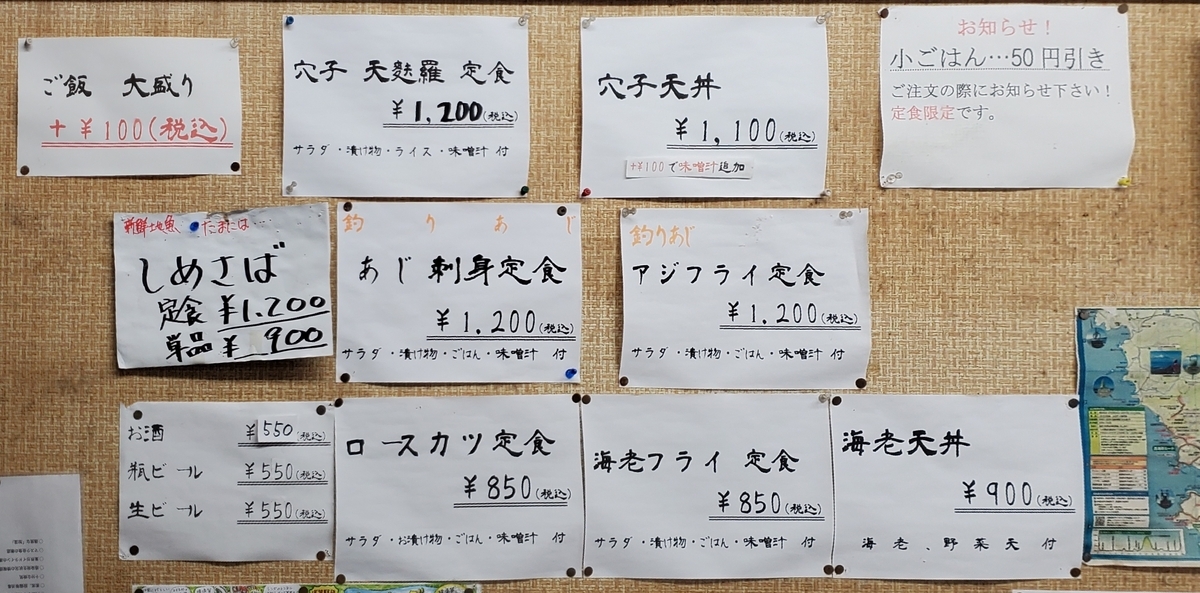 ご飯 大盛り
+¥100(税込)
穴子 天麩羅 定食
¥1,200(税込)
サラダ・漬け物・ライス・味噌汁 付
穴子天丼
¥1,100(税込)
+¥100で味噌汁追加
お知らせ!
小ごはん…50円引き
ご注文の際にお知らせ下さい!
定食限定です。
新鮮地魚、たまには
しめさば
定食 ¥1.200
単品 ¥ 900
釣りあじ
あじ 刺身定食
¥1.200(税込)
サラダ・漬け物・ごはん・味噌汁 付
釣りあじ
アジフライ定食
¥1.200(税込)
サラダ・漬け物・ごはん・味噌汁 付
お酒 ¥550(税込)
瓶ビール ¥550(税込)
生ビール ¥550(税込)
ロースカツ定食
¥850(税込)
サラダ・お漬け物・ごはん・味噌汁 付
海老フライ 定食
¥850(税込)
サラダ・漬け物・ごはん・味噌汁 付
海老天丼
¥900(税込)
海老、野菜天付